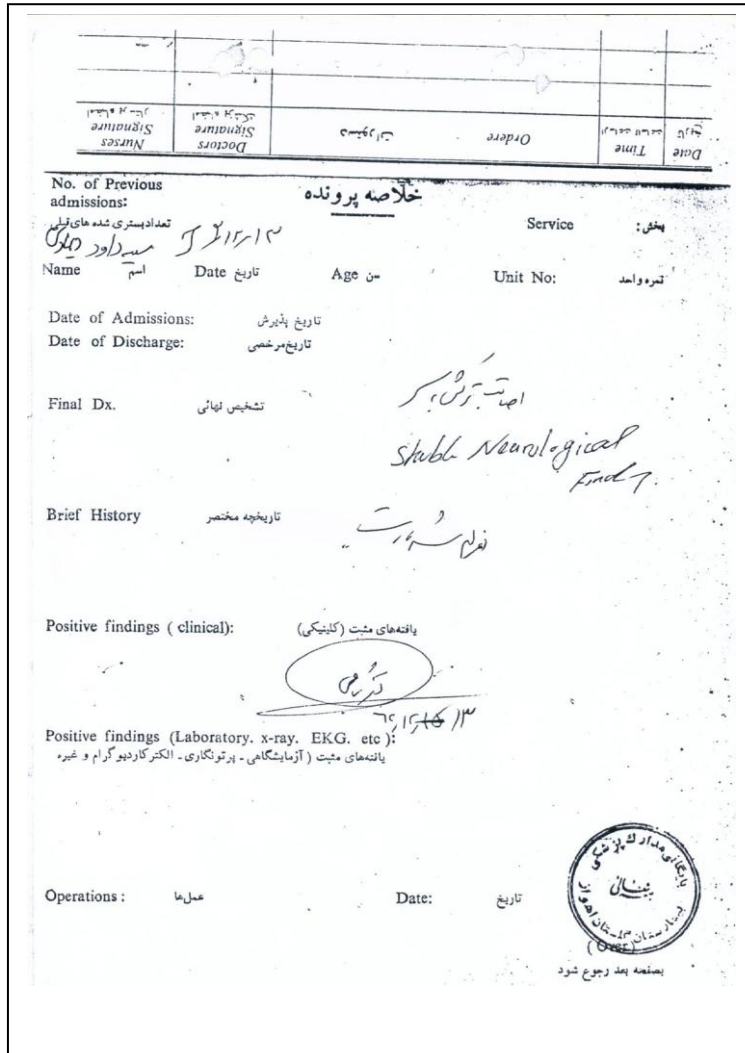 Nurses Signature امضاء پرستار
Doctors Signature امضاء پزشک
دستورات Ordere
Time ساعت
Date تاریخ
خلاصه پرونده
No. of Previous admissions:
تعداد بستری شده های قبلی
Service بخش:
سید داود
Name اسم Date تاریخ Age سن Unit No: نمره واحد
Date of Admissions: تاریخ پذیرش
Date of Discharge: تاریخ مرخصی
Final Dx. تشخیص نهائی اصابت ترکش به سر
Stable Neurological
Brief History تاریخچه مختصر
Positive findings ( clinical): یافته‌های مثبت (کلینیکی)
Positive findings (Laboratory. x-ray. EKG. etc ):
یافته‌های مثبت ( آزمایشگاهی - پرتونگاری - الکترکاردیوگرام و غیره
Operations : عمل‌ها Date: تاریخ
بایگانی مدارک پزشکی
( Over )
بصفحه بعد رجوع شود